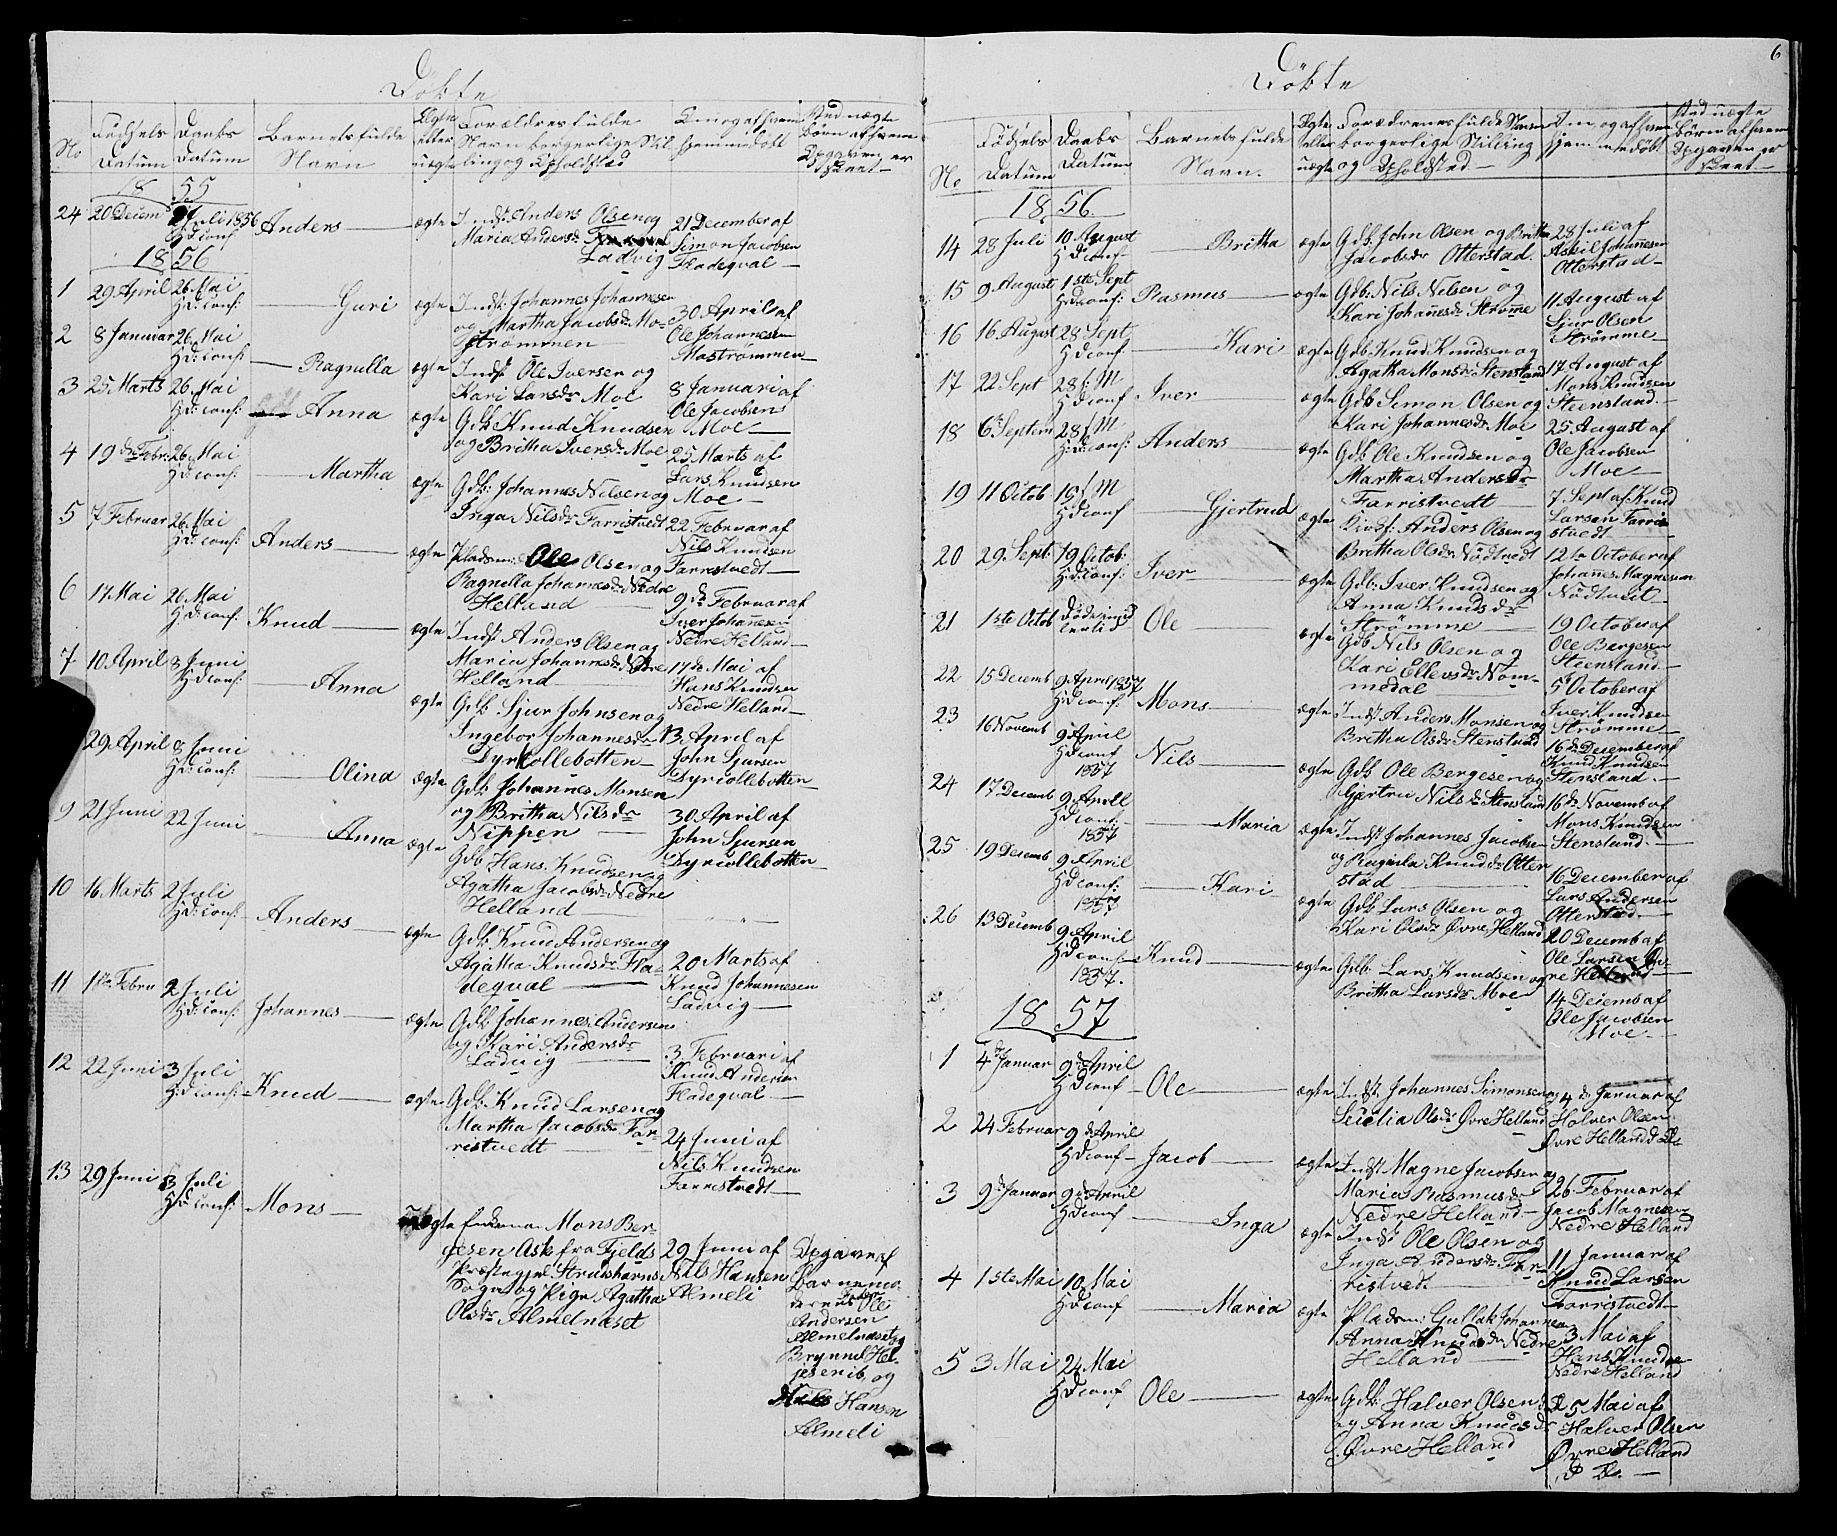 Döbte
No
Födsels Datum
Daabs Datum
Barnets fulde Navn
Ægte eller uægte
Forældres fulde Navn borgerlige Stilling og Opholdsted
Om og af hvem hjemmedöbt
Ved uægte börn af hvem Opgaven er skeet
1855
24 20 Decemb 2 Juli 1856 H: D: conf Anders ægte Indst. Anders Olsen og Maria Andersdr Ladvig 21 December af Simon Jacobsen Fladeqval
1856
1 29 April 26 Mai H: D: conf: Guri ægte Indst: Johannes Johannesen og Martha Jacobsdr Mostrømmen 30 April af Ole Johannesen Mostrømmen
2 8 Januar 26 Mai H: D: conf: Ragnilla ægte Indst Ole Iversen og Kari Larsdr Moe 8 Januari af Ole Jacobsen Moe
3 25 Marts 26 Mai H: D: conf: Anna ægte Gdb: Knud Knudsen og Britha Iversdr Moe 25 Marts af Lars Knudsen Moe
4 19de Febr: 26 Mai H: D: conf: Martha ægte Gdb: Johannes Nilsen og Inga Nilsdr Farristvedt 22 Februar af Nils Knudsen Farrestvedt
5 7 Februar 26 Mai H: D: conf: Anders ægte Pladsm: Ole Olsen og Ragnilla Johannesdr Nedre Helland 9de Februar af Iver Johannesen Nedre Helland
6 17 Mai 26 Mai H: D: conf: Knud ægte Indst Anders Olsen og Maria Johannesdr Nedre Helland 17de Mai af Hans Knudsen Nedre Helland
7 10 April 8 Juni H: D: conf: Anna ægte Gdb: Sjur Johnsen og Ingebor Johannesdr Dyrkollebotten 13 April af John Sjursen Dyrkollebotten
29 April 8 Juni H: D: conf: Olina ægte Gdb: Johannes Monsen og Britha Nilsdr Nippen 30 April af John Sjursen Dyrkollebotten
9 21 Juni 22 Juni Anna ægte Gdb Hans Knudsen og Agatha Jacobsdr Nedre Helland
10 16 Marts 2 Juli H: D: conf: Anders ægte Gdb: Knud Andersen og Agatha Knudsdr Fladeqval 20 Marts af Knud Johannesen Ladvig
11 1ste Febru 2 Juli H: D: conf: Johannes ægte Gdb: Johannes Andersen og Kari Andersdr Ladvig 3 Februari af Knud Andersen Fladeqval
12 22 Juni 3 Juli H: D: conf: Knud ægte Gdb: Knud Larsen og Martha Jacobsdr Farristvedt 24 Juni af Nils Knudsen Farrestvedt
13 29 Juni 3 Juli H: D: conf: Mons uægte Mons Bergesen Ask fra Fjelds Præstegjel Strudshavns Sogn og Pige Agatha Olsdr Almelnæset 29 Juni af Nils Hansen Almeli Opgave af Barnemoderens Fader Ole Andersen Almelnæset og Brynnel Helgeserib, og Nils Hansen Almeli
6
Döbte
No
Födsels Datum
Daabs Datum
Barnets fulde Navn.
Ægte eller uægte
Forældrenes fulde Navn borgerlige Stilling og Opholdsted
Om, og af hvem hjemmedöbt
Ved uægte börn af hvem Opgaven er skeet
1856
14 28 Juli 10 August H: D conf Britha ægte Gdb. John Olsen og Britha Jacobsdr Otterstad 28 Juli af Askil Johannesen Otterstad
15 9 August 1ste Sept H: D conf: Rasmus ægte Gdb: Nils Nilsen og Kari Johannesdr Strømme 11 August af Sjur Olsen Strømme
16 16 August 28 Sept H: D conf Kari ægte Gdb: Knud Knudsen og Agatha Monsdr Stensland 17 August af Mons Knudsen Steensland
17 22 Sept 28 f: M H: D conf Iver ægte Gdb Simon Olsen og Kari Johannesdr Moe 25 August af Ole Jacobsen Moe
18 6 Septem 28 f: M H: D: conf: Anders ægte Gdb Ole Knudsen og Martha Andersdr Farristvedt 7 Sept af: Knud Larsen Farristvedt
19 11 Octob 19 f: M H: D conf Gjertrud ægte Anders Olsen og Britha Olsdr Nödtvedt 12te October af Johannes Magnesen Nödtveit
20 29 Sept: 19 Octob: H: D: conf: Iver ægte Gdb: Iver Knudsen og Anna Knudsdr Strømme 19 October af Ole Bergesen Steensland
21 1ste Octob Ole ægte Gdb Nils Olsen og Kari Ellevsdr Nommedal 5 October af Iver Knudsen Strømme
22 15 Decemb 9 April 1857 H: D conf Mons ægte Indst: Anders Monsen og Britha Olsdr Stensland 16de December af Knud Knudsen Stensland
23 16 Novemb 9 April H: D conf 1857 Nils ægte Gdb: Ole Bergesen og Gjertru Nilsdr Stensland 16de Novemb af Mons Knudsen Stensland
24 17 Decemb 9 April H: D conf: 1857 Maria ægte Indst Johannes Jacobsen og Ragnila Knudsdr Otterstad 16 December af Lars Andersen Otterstad
25 19 Decemb 9 April H: D conf: 1857 Kari ægte Gdb: Lars Olsen og Kari Olsdr Øvre Helland 20 Decemb af Ole Larsen Øvre Helland
26 13 Decemb 9 April H: D conf 1857. Knud ægte Gdb: Lars Knudsen og Britha Larsdr Moe 14 Decemb af Ole Jacobsen Moe
1857
1 4de Januar 9de April H: D conf Ole ægte Indst: Johannes Simonsen og Scicilia Olsdr Øvre Helland 4de Januar af Halver Olsen Øvre Helland
2 24 Februar 9de April H: D conf Jacob ægte Indst Magne Jacobsen og Maria Rasmusdr Nedre Helland 26 Februar af Jacob Magnesen Nedre Helland
3 9de Januar 9de April H: D conf Inga ægte Indst Ole Olsen og Inga Andersdr Farristvedt 11 Januar af Knud Larsen Farristvedt
4 1ste Mai 10 Mai H: D conf Maria ægte Pladsm: Gullak Johannesen Anna Knudsdr Nedre Helland 3 Mai af Hans Knudsen Nedre Helland
5 3 Mai 24 Mai H: D conf Ole ægte Gdb: Halver Olsen og Anna Knudsdr Øvre Helland 5 Mai af Halver Olsen Øvre Helland